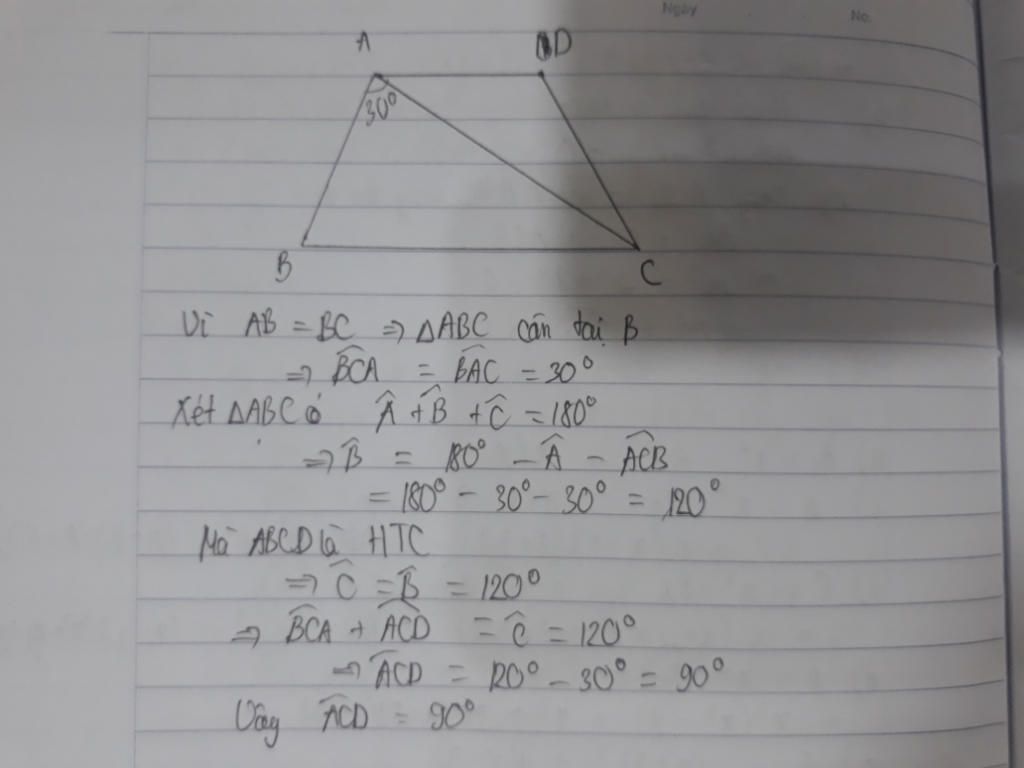 Ngày No.
A D
30°
B C
Vì AB = BC ⇒ △ABC cân tại B
⇒ \widehat{BCA} = \widehat{BAC} = 30°
Xét △ABC có \widehat{A} + \widehat{B} + \widehat{C} = 180°
⇒ \widehat{B} = 180° - \widehat{A} - \widehat{ACB}
= 180° - 30° - 30° = 120°
Mà ABCD là HTC
⇒ \widehat{C} = \widehat{B} = 120°
⇒ \widehat{BCA} + \widehat{ACD} = \widehat{C} = 120°
⇒ \widehat{ACD} = 120° - 30° = 90°
Vậy \widehat{ACD} = 90°